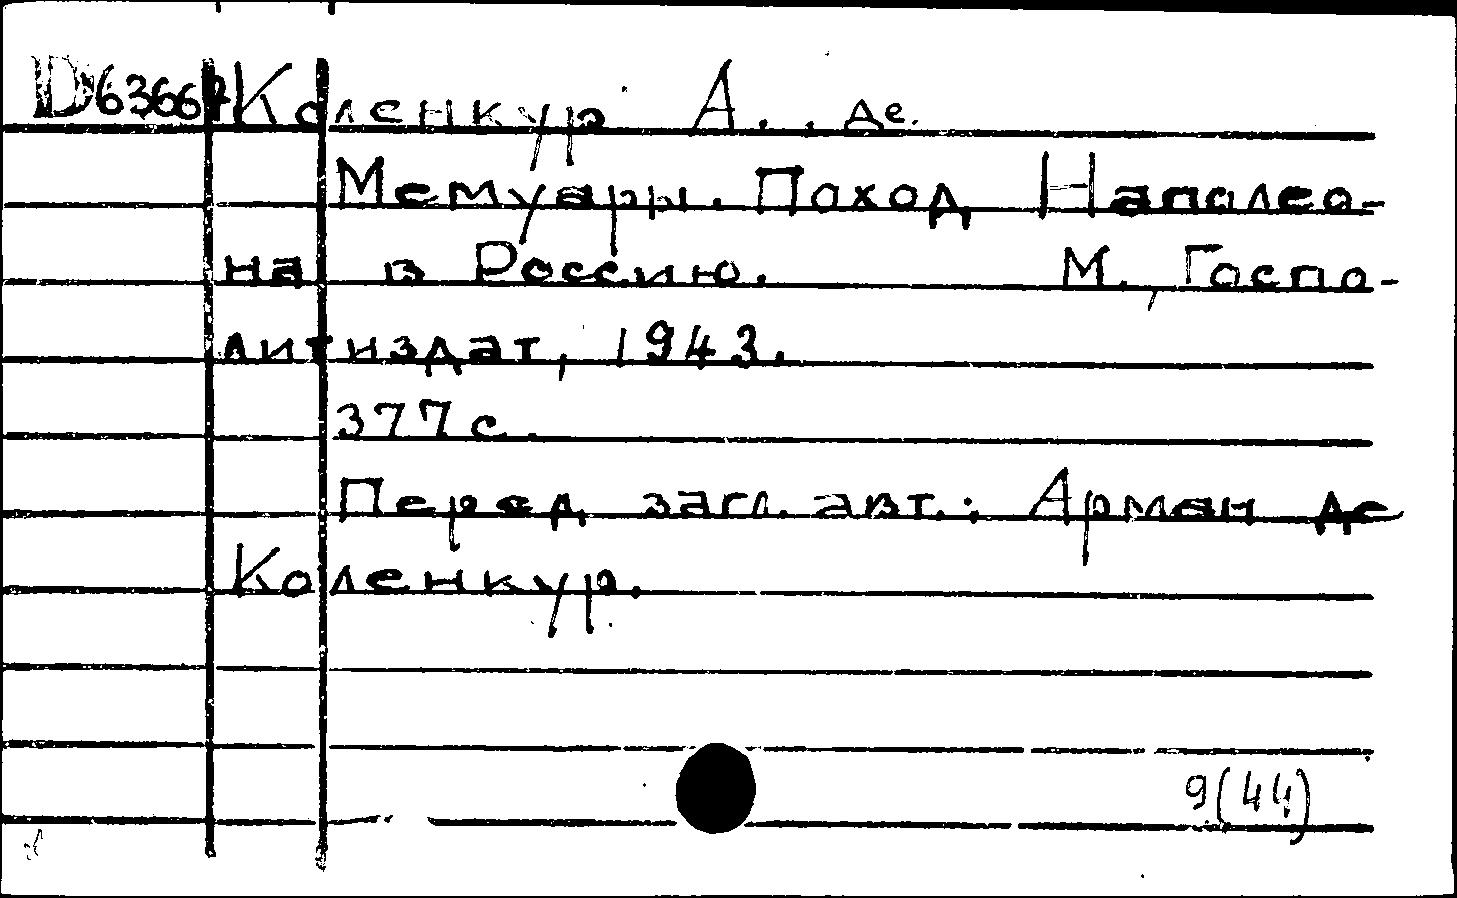 D63667 Коленкур А., де.
Мемуары. Поход Наполео-
на в Россию. М., Госпо-
литиздат, 1943.
377 с.
Перед загл. авт.: Арман де
Коленкур.
9(44)